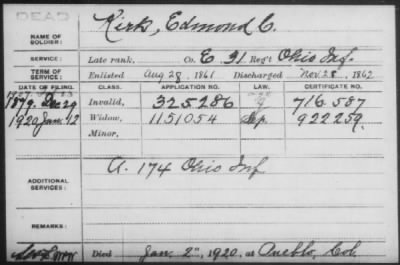 DEAD
NAME OF SOLDIER: Kirk, Edmond C.
SERVICE: Late rank, Co. E 91 Reg't Ohio Inf.
TERM OF SERVICE: Enlisted Aug 28, 1861 Discharged Nov. 28, 1862
DATE OF FILING. CLASS. APPLICATION NO. LAW. CERTIFICATE NO.
1879. Dec 29 Invalid, 325286 716.587
1920 Jan. 12 Widow, 1151054 922259.
Minor,
ADDITIONAL SERVICES: A. 174 Ohio Inf
REMARKS:
Died Jan. 2", 1920, at Pueblo, Col.